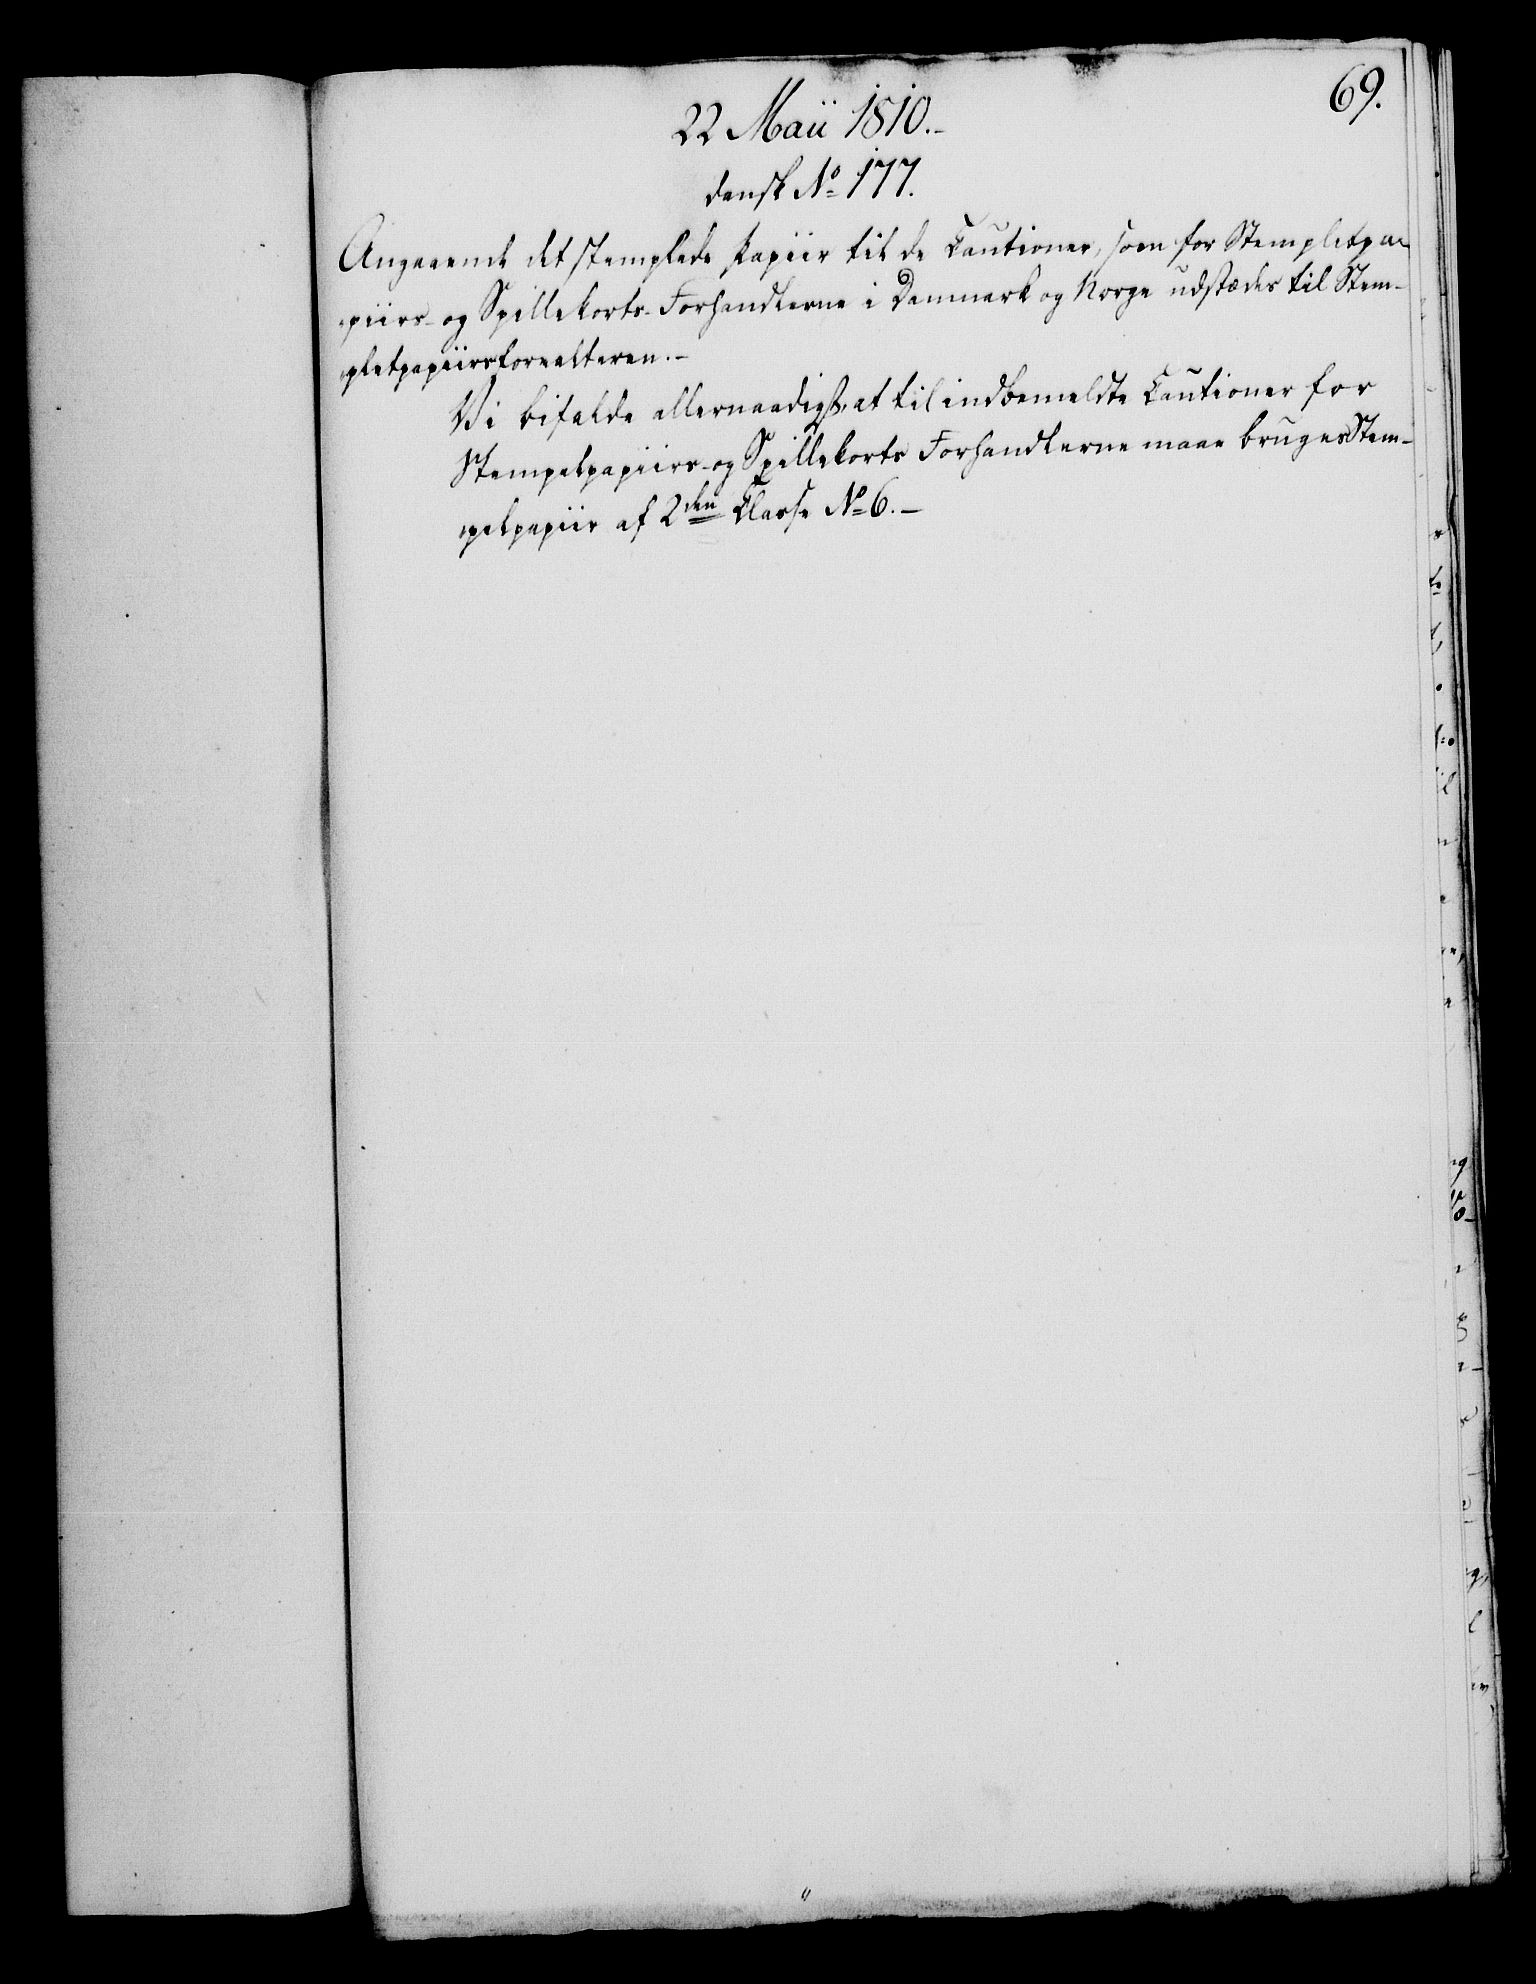 69.
22 Maii 1810.-
dansk No 177.
Angaaende det stemplede Papiir til de Cautioner, som for Stempletpa-
piirs- og Spillekorts-Forhandlerne i Danmark og Norge udstædes til Stem-
pletpapiirsforvalteren.-
Vi bifalde allernaadigst, at til indbemeldte Cautioner for
Stempelpapiirs- og Spillekorts Forhandlerne maae bruges Stem-
pelpapiir af 2den Classe No 6.-